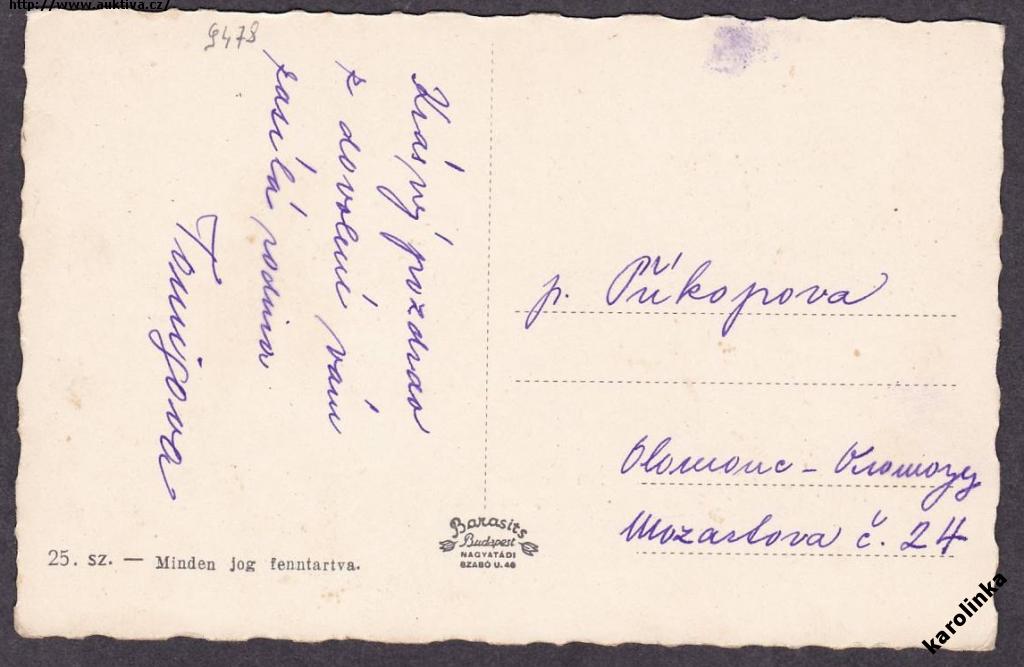 http://www.auktiva.cz/
9478
Krásný pozdrav
z dovolené vám
zasílá rodina
p. Příkopova
Olomouc –
Mozartova č. 24
Barasits
Budapest
NAGYATÁDI
SZABÓ U. 46
25. sz. — Minden jog fenntartva.
karolinka